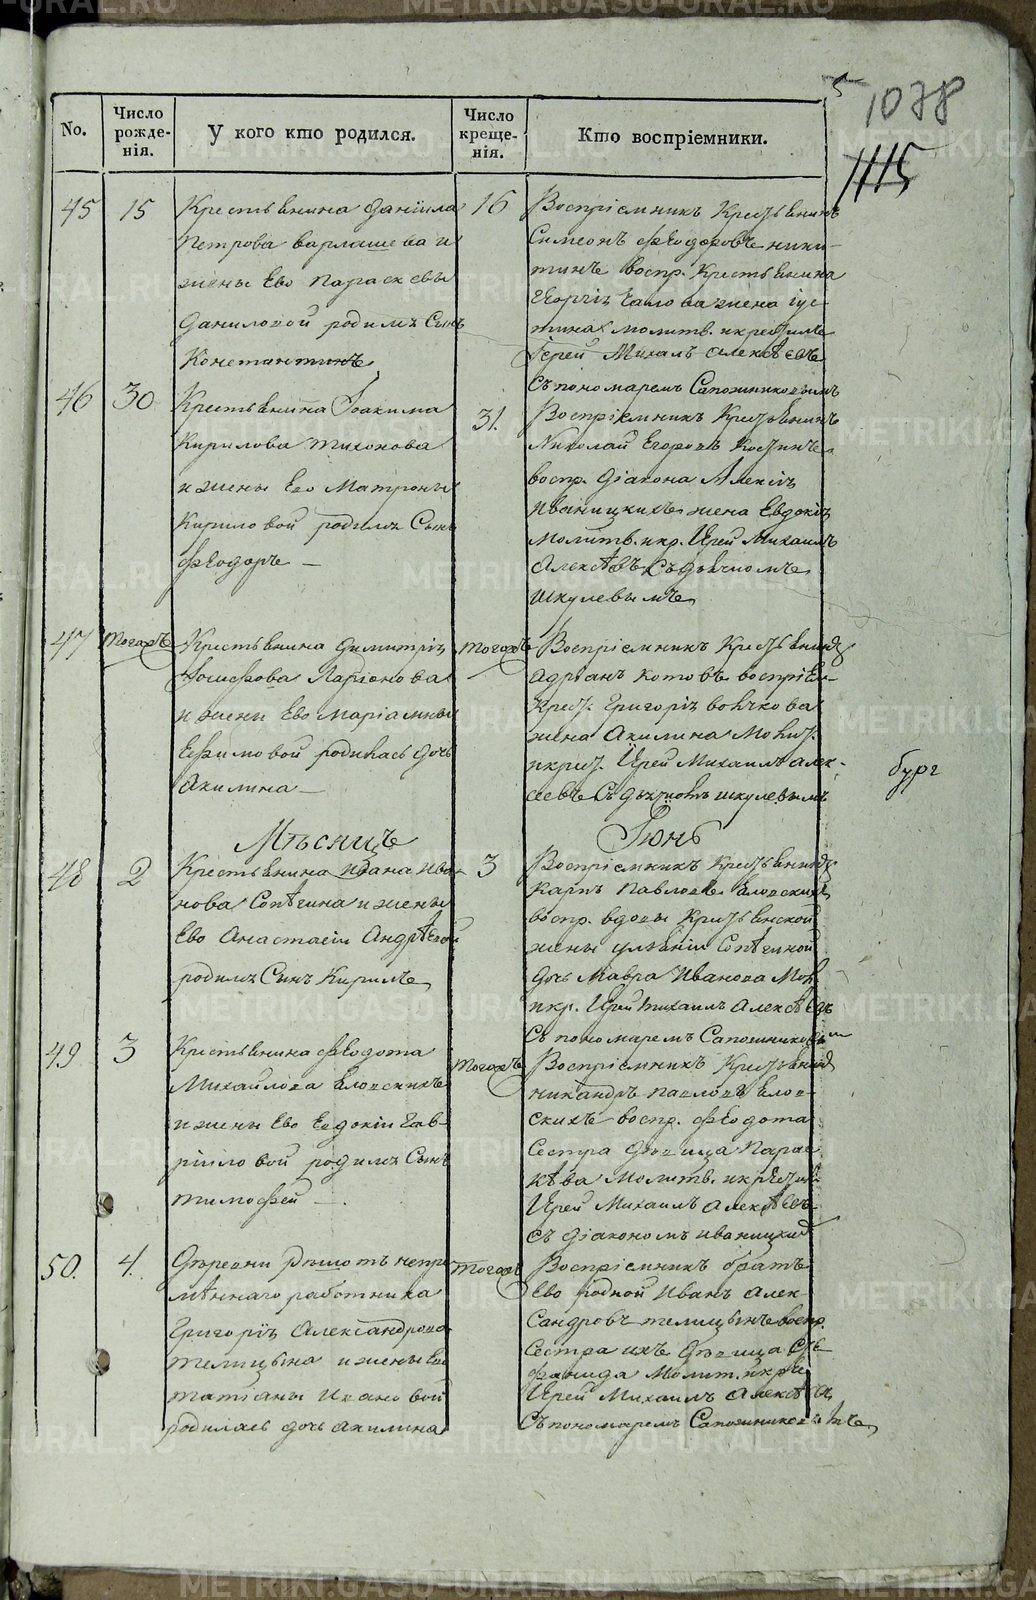 5
1078
1115
No.
Число рожде-нія.
У кого кто родился.
Число креще-нія.
Кто воспріемники.
45
15
Крестьянина Даніила
Петрова Варлашева и
жены Ево Параскевы
Даниловой родился Сынъ
Константинъ
16
Воспріемникъ Крестьянинъ
Симеонъ Феодоровъ Ники-
тинъ воспр. Крестьянина
жена Іус-
тина молитв. и крестилъ
Іерей Михаилъ Алексѣевъ
Съ пономаремъ Сапожниковымъ
46
30
Крестьянина Іоакима
Кирилова Тихонова
и жены Ево Матроны
Кириловой родился Сынъ
Феодоръ —
31.
Воспріемникъ Крестьянинъ
Николай Егоровъ Костинъ
воспр. Діакона Алексія
Иваницкихъ жена Евдокія
молитв. и кр. Іерей Михаилъ
Алексѣевъ Съ дьячкомъ
Шкулевымъ
47
Тогожъ
Крестьянина Димитрія
Іосифова Ларіонова
и жены Ево Маріамны
Ефимовой родилась дочь
Акилина —
Тогожъ
Воспріемникъ Крестьянинъ
Адріанъ Котовъ воспріем-
Крест. Григорія Волчкова
жена Акилина Молит.
и крест. Іерей Михаилъ Алек-
сеевъ Съ дьячкомъ Шкулевымъ
бург
Мѣсяцъ
Іюнь
48
2
Крестьянина Ивана Ива-
нова Сопѣгина и жены
Ево Анастасіи Андрѣевой
родился Сынъ Кирилъ
3
Воспріемникъ Крестьянинъ
Карпъ Павловъ Еловскихъ
воспр. вдовы Крестьянской
жены Уліяніи Сопѣгиной
дочь Мавра Иванова Мол.
и кр. Іерей Михаилъ Алексѣевъ
Съ пономаремъ Сапожниковымъ
49
3
Крестьянина Феодота
Михайлова Еловскихъ
и жены Ево Евдокіи Гав-
рииловой родился Сынъ
Тимофей —.
Тогожъ
Воспріемникъ Крестьянинъ
Никандръ Павловъ Елов-
скихъ воспр. Феодота
Сестра Дѣвица Парас-
кѣва Молитв. и крестилъ
Іерей Михаилъ Алексѣевъ
съ Діакономъ Иваницкимъ
50.
4.
Деревни непре-
мѣннаго работника
Григорія Александрова
Телицына и жены Ево
Татіаны Ивановой
родилась дочь Акилина
Тогожъ
Воспріемникъ братъ
Ево родной Иванъ Алек-
сандровъ Телицынъ воспр.
Сестра ихъ Дѣвица Сте-
фанида Молит. и кре.
Іерей Михаилъ Алексѣевъ
Съ пономаремъ Сапожниковымъ
METRIKI.GASU-URAL.RU